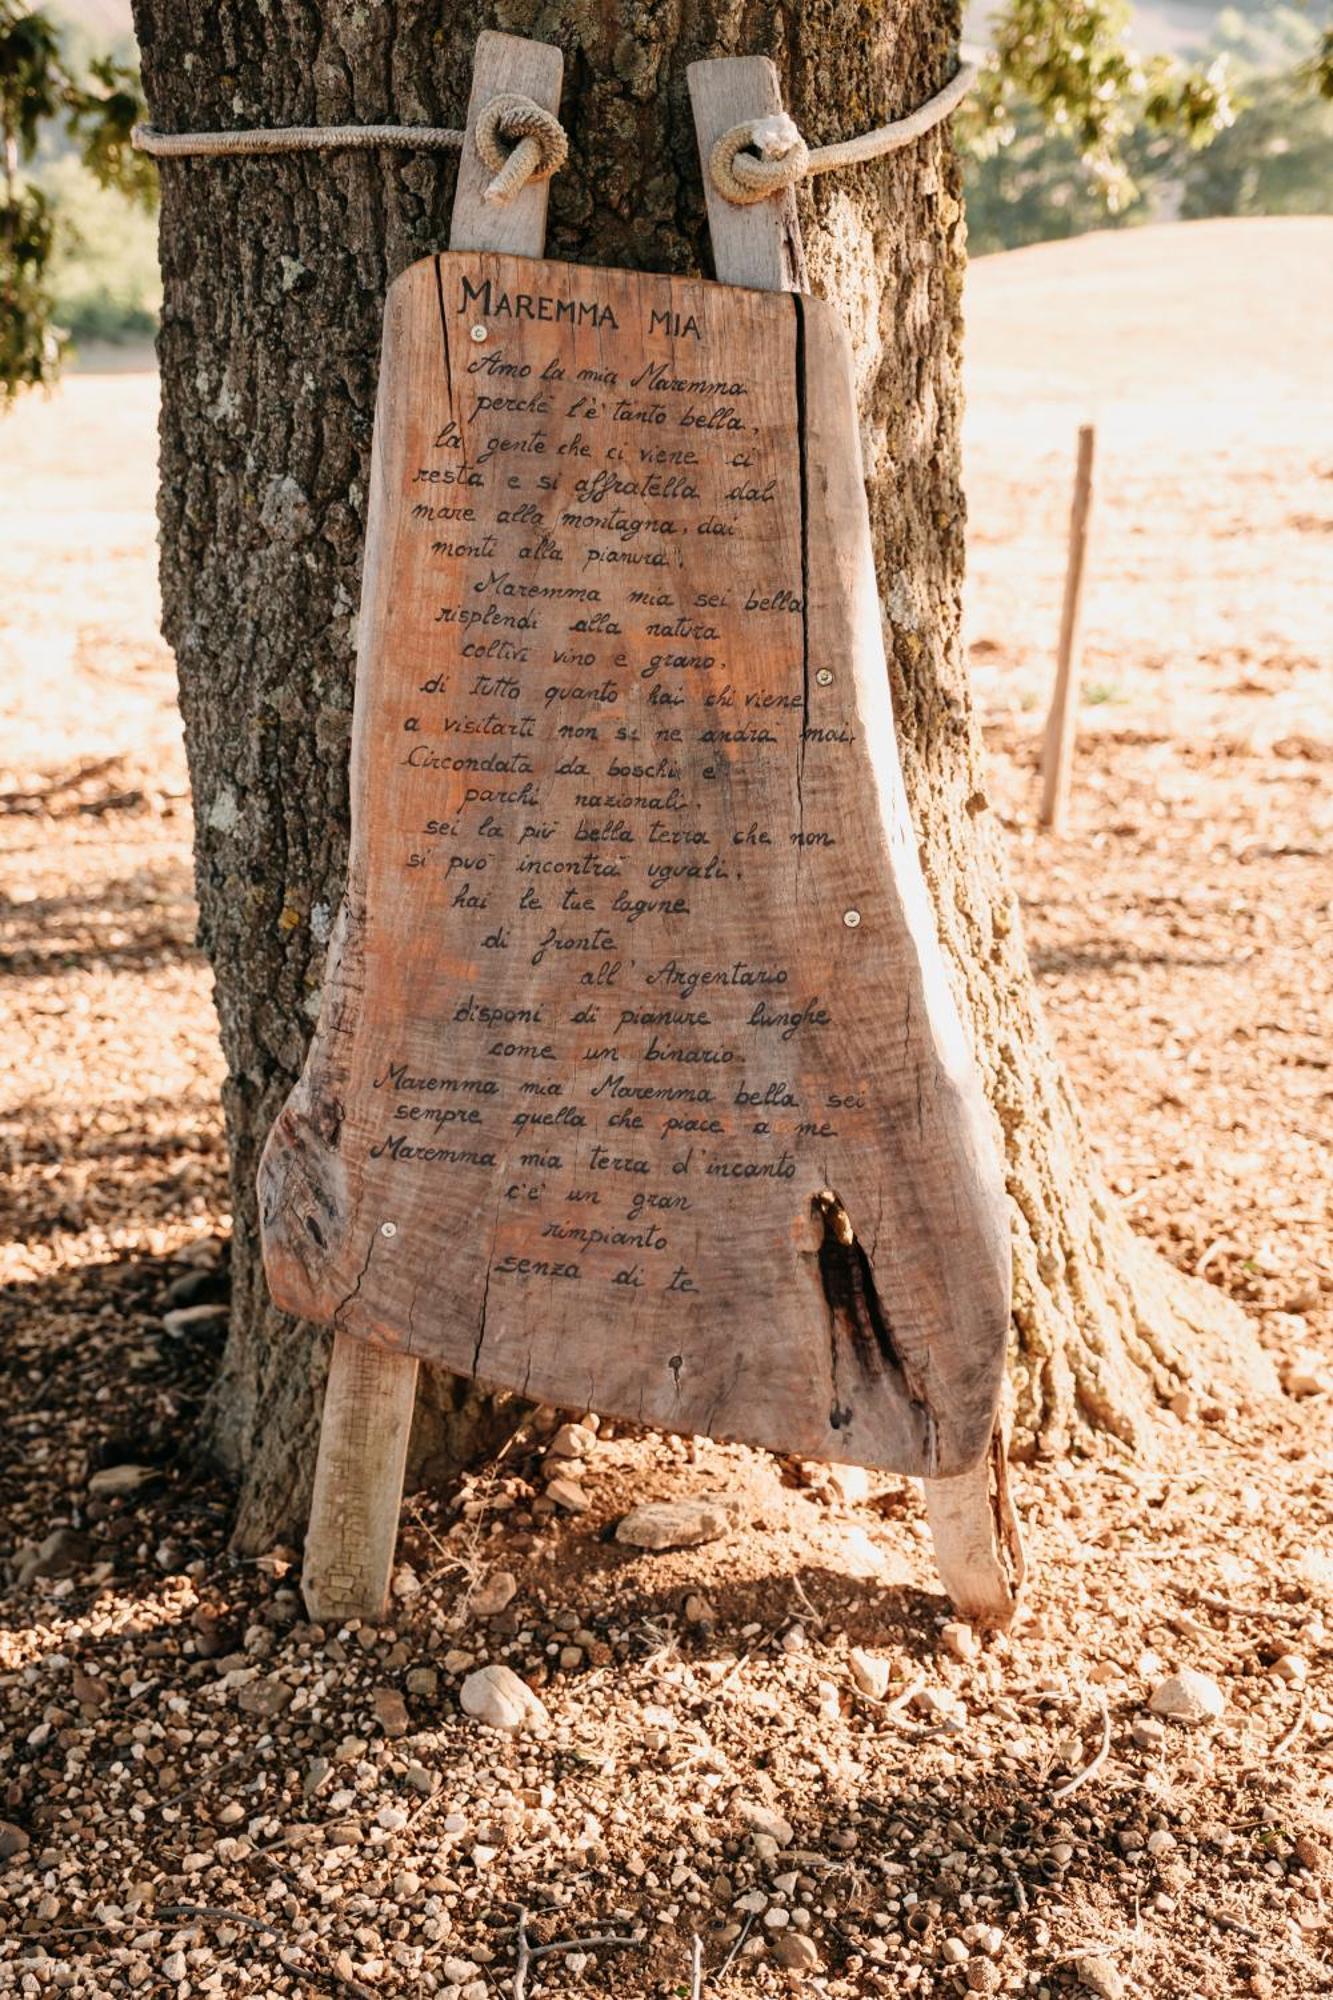 MAREMMA MIA
Amo la mia Maremma
perchè l'è tanto bella,
la gente che ci viene ci
resta e si affratella dal
mare alla montagna, dai
monti alla pianura.
Maremma mia sei bella
risplendi alla natura
coltivi vino e grano,
di tutto quanto hai chi viene
a visitarti non se ne andrà mai,
Circondata da boschi e
parchi nazionali,
sei la più bella terra che non
si può incontrà uguali,
hai le tue lagune
di fronte
all' Argentario
disponi di pianure lunghe
come un binario.
Maremma mia Maremma bella sei
sempre quella che piace a me
Maremma mia terra d'incanto
c'è un gran
rimpianto
senza di te